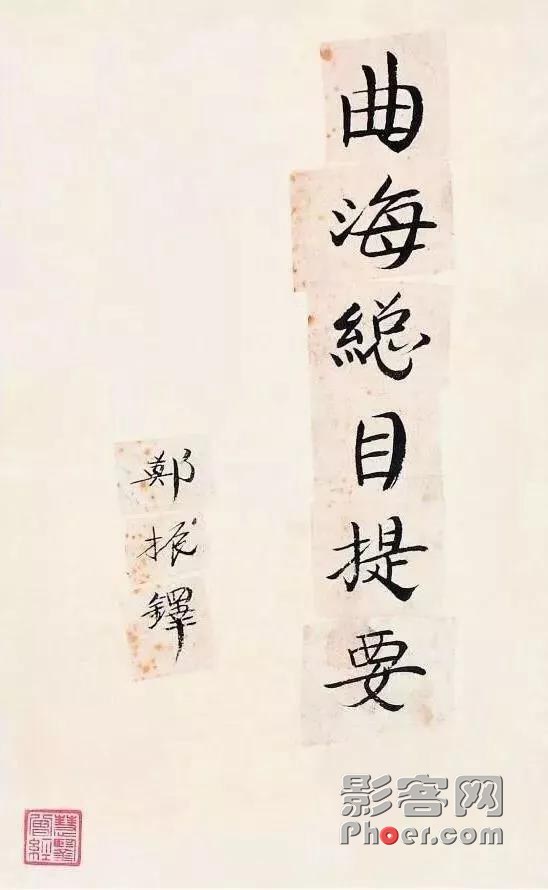 曲海総目提要
鄭振鐸
影客网
Phoer.com